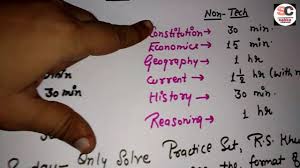 Non-Tech
Constitution → 30 min.
Economics → 15 min
Geography → 1 hr
Current → 1½ hr (with n
History → 30 min.
30 min
Reasoning → 1 hr
day - Only Solve Practice Set, R.S. Kh
the format of